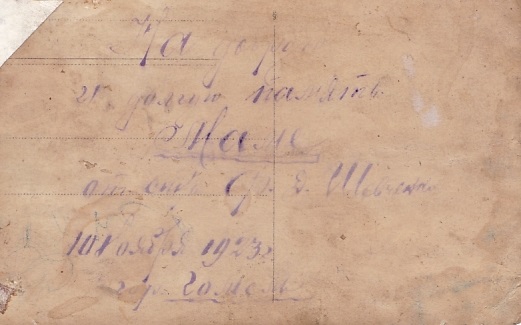 На добрую
и долгую память
Маме
от сына Ф. Е. Шевченко
10 Ноября 1923 г.
г. Гомель